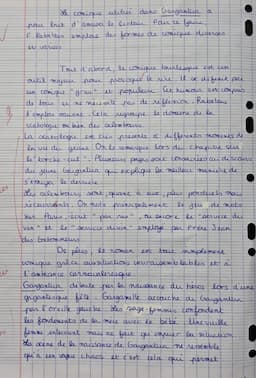 Le comique utilisé dans Gargantua a
pour but d'amuser le lecteur. Pour ce faire,
F. Rabelais emploie des formes de comique diverses
et variées.
Tout d'abord, le comique burlesque est un
outil majeur pour provoquer le rire. Il se définit par
un comique "gras" et populaire. Cet humour est compris
de tous et ne nécessite pas de réflexion. Rabelais
l'emploie souvent. Cela regroupe le domaine de la
scatologie même des calembours.
La scatologie est très présente à différents moments de
la vie du géant. On le remarque lors du chapitre sur
le "torche-cul". Plusieurs pages sont consacrées au discours
du jeune Gargantua qui explique la meilleure manière de
s'essuyer le derrière.
Les calembours sont, quant à eux, plus ponctuels mais
récurrents. On note principalement le jeu de mots
sur Paris, soit "par ris", ou encore le "service du
vin" et le "service divin" employé par Frère Jean
des Entommeures.
De plus, le roman est tout simplement
comique grâce aux situations invraisemblables et à
l'ambiance carnavalesque.
Gargantua débute par la naissance du héros lors d'une
gigantesque fête. Gargamelle accouche de Gargantua
par l'oreille gauche. Les sages-femmes confondent
les fondements de la mère avec le bébé. Une vieille
femme intervient mais ne fait qu'empirer la situation.
La scène de la naissance de Gargantua ne ressemble
qu'à un vaste chaos et c'est cela qui permet